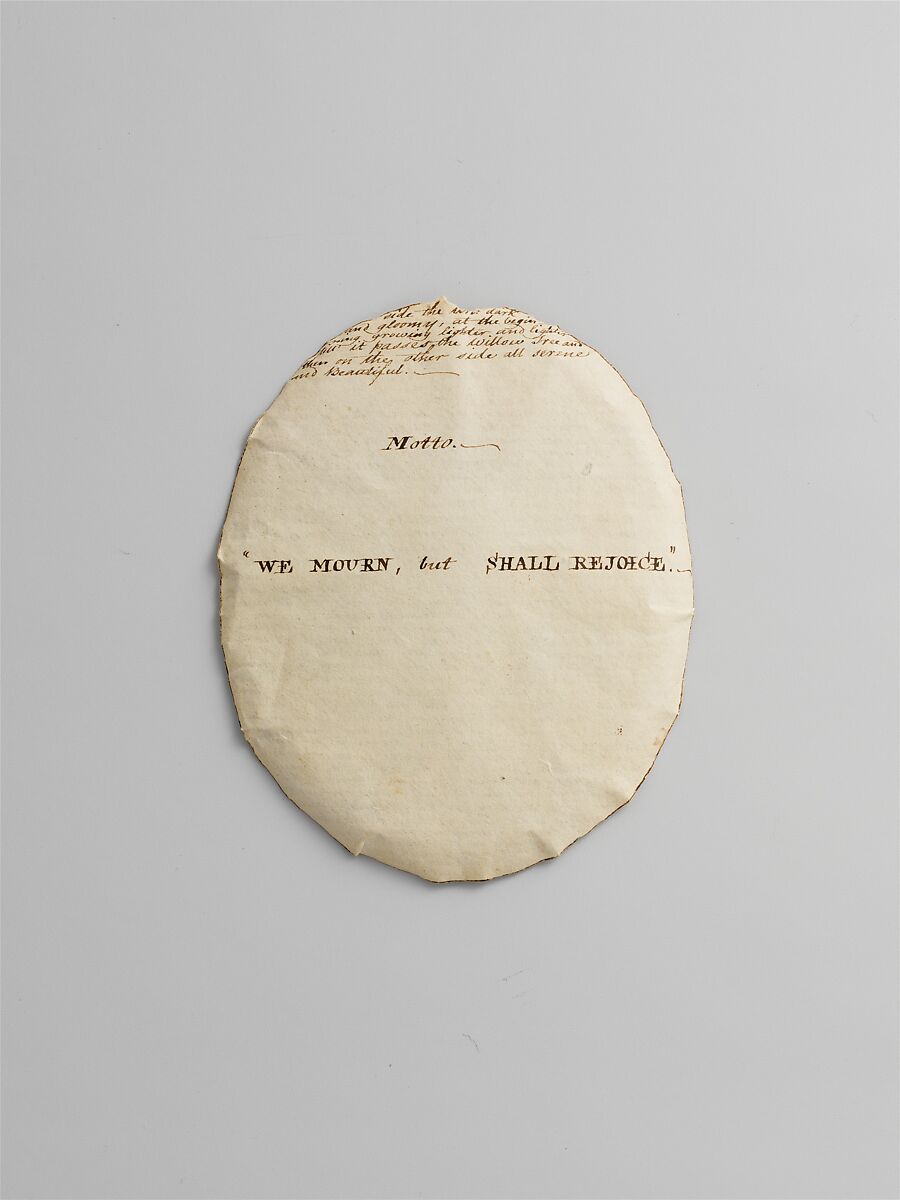 side the dark
and gloomy, at the begin
ning, growing lighter and lighter
till it passes the willow Tree and
then on the other side all serene
and Beautiful.
Motto.
"WE MOURN, but SHALL REJOICE".